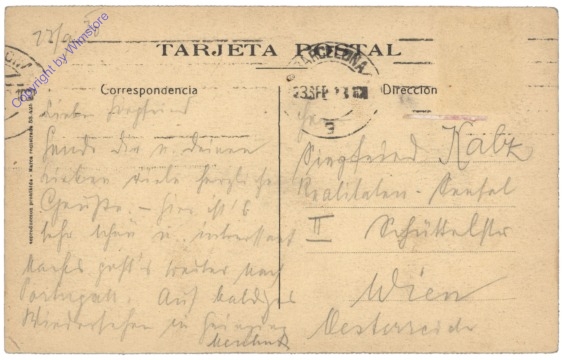 22/9
TARJETA POSTAL
BARCELONA
23 SEP 23
9
Copyright by Wimstore
Correspondencia
Dirección
Lieber Siegfried
Sende dir u. deinen
lieben viele herzliche
Grüße. – Hier ist's
sehr schön u. interessant
geht's weiter nach
Portugal. Auf baldiges
Wiedersehen in Grinzing
Siegfried Katz
Realitäten-Sensal
II Schüttelstr
Wien
Oesterreich